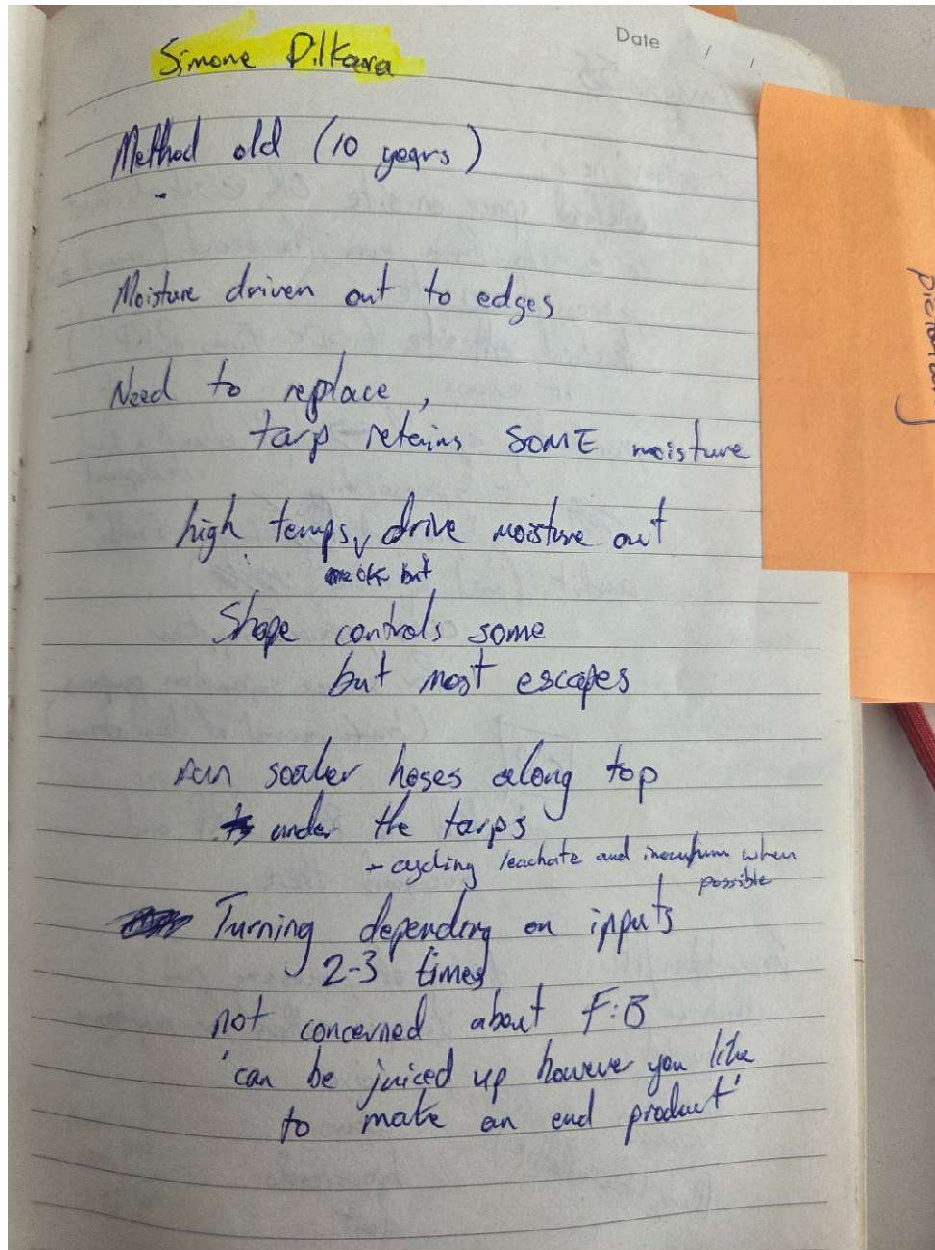 Date / /
Simone Dilkara
Method old (10 years)
Moisture driven out to edges
Need to replace,
tarp retains SOME moisture
high temps, drive moisture out
ok but
Shape controls some
but most escapes
run soaker hoses along top
under the tarps
- cycling leachate and inoculum when
possible
Turning depending on inputs
2-3 times
not concerned about F:B
'can be juiced up however you like
to make an end product'